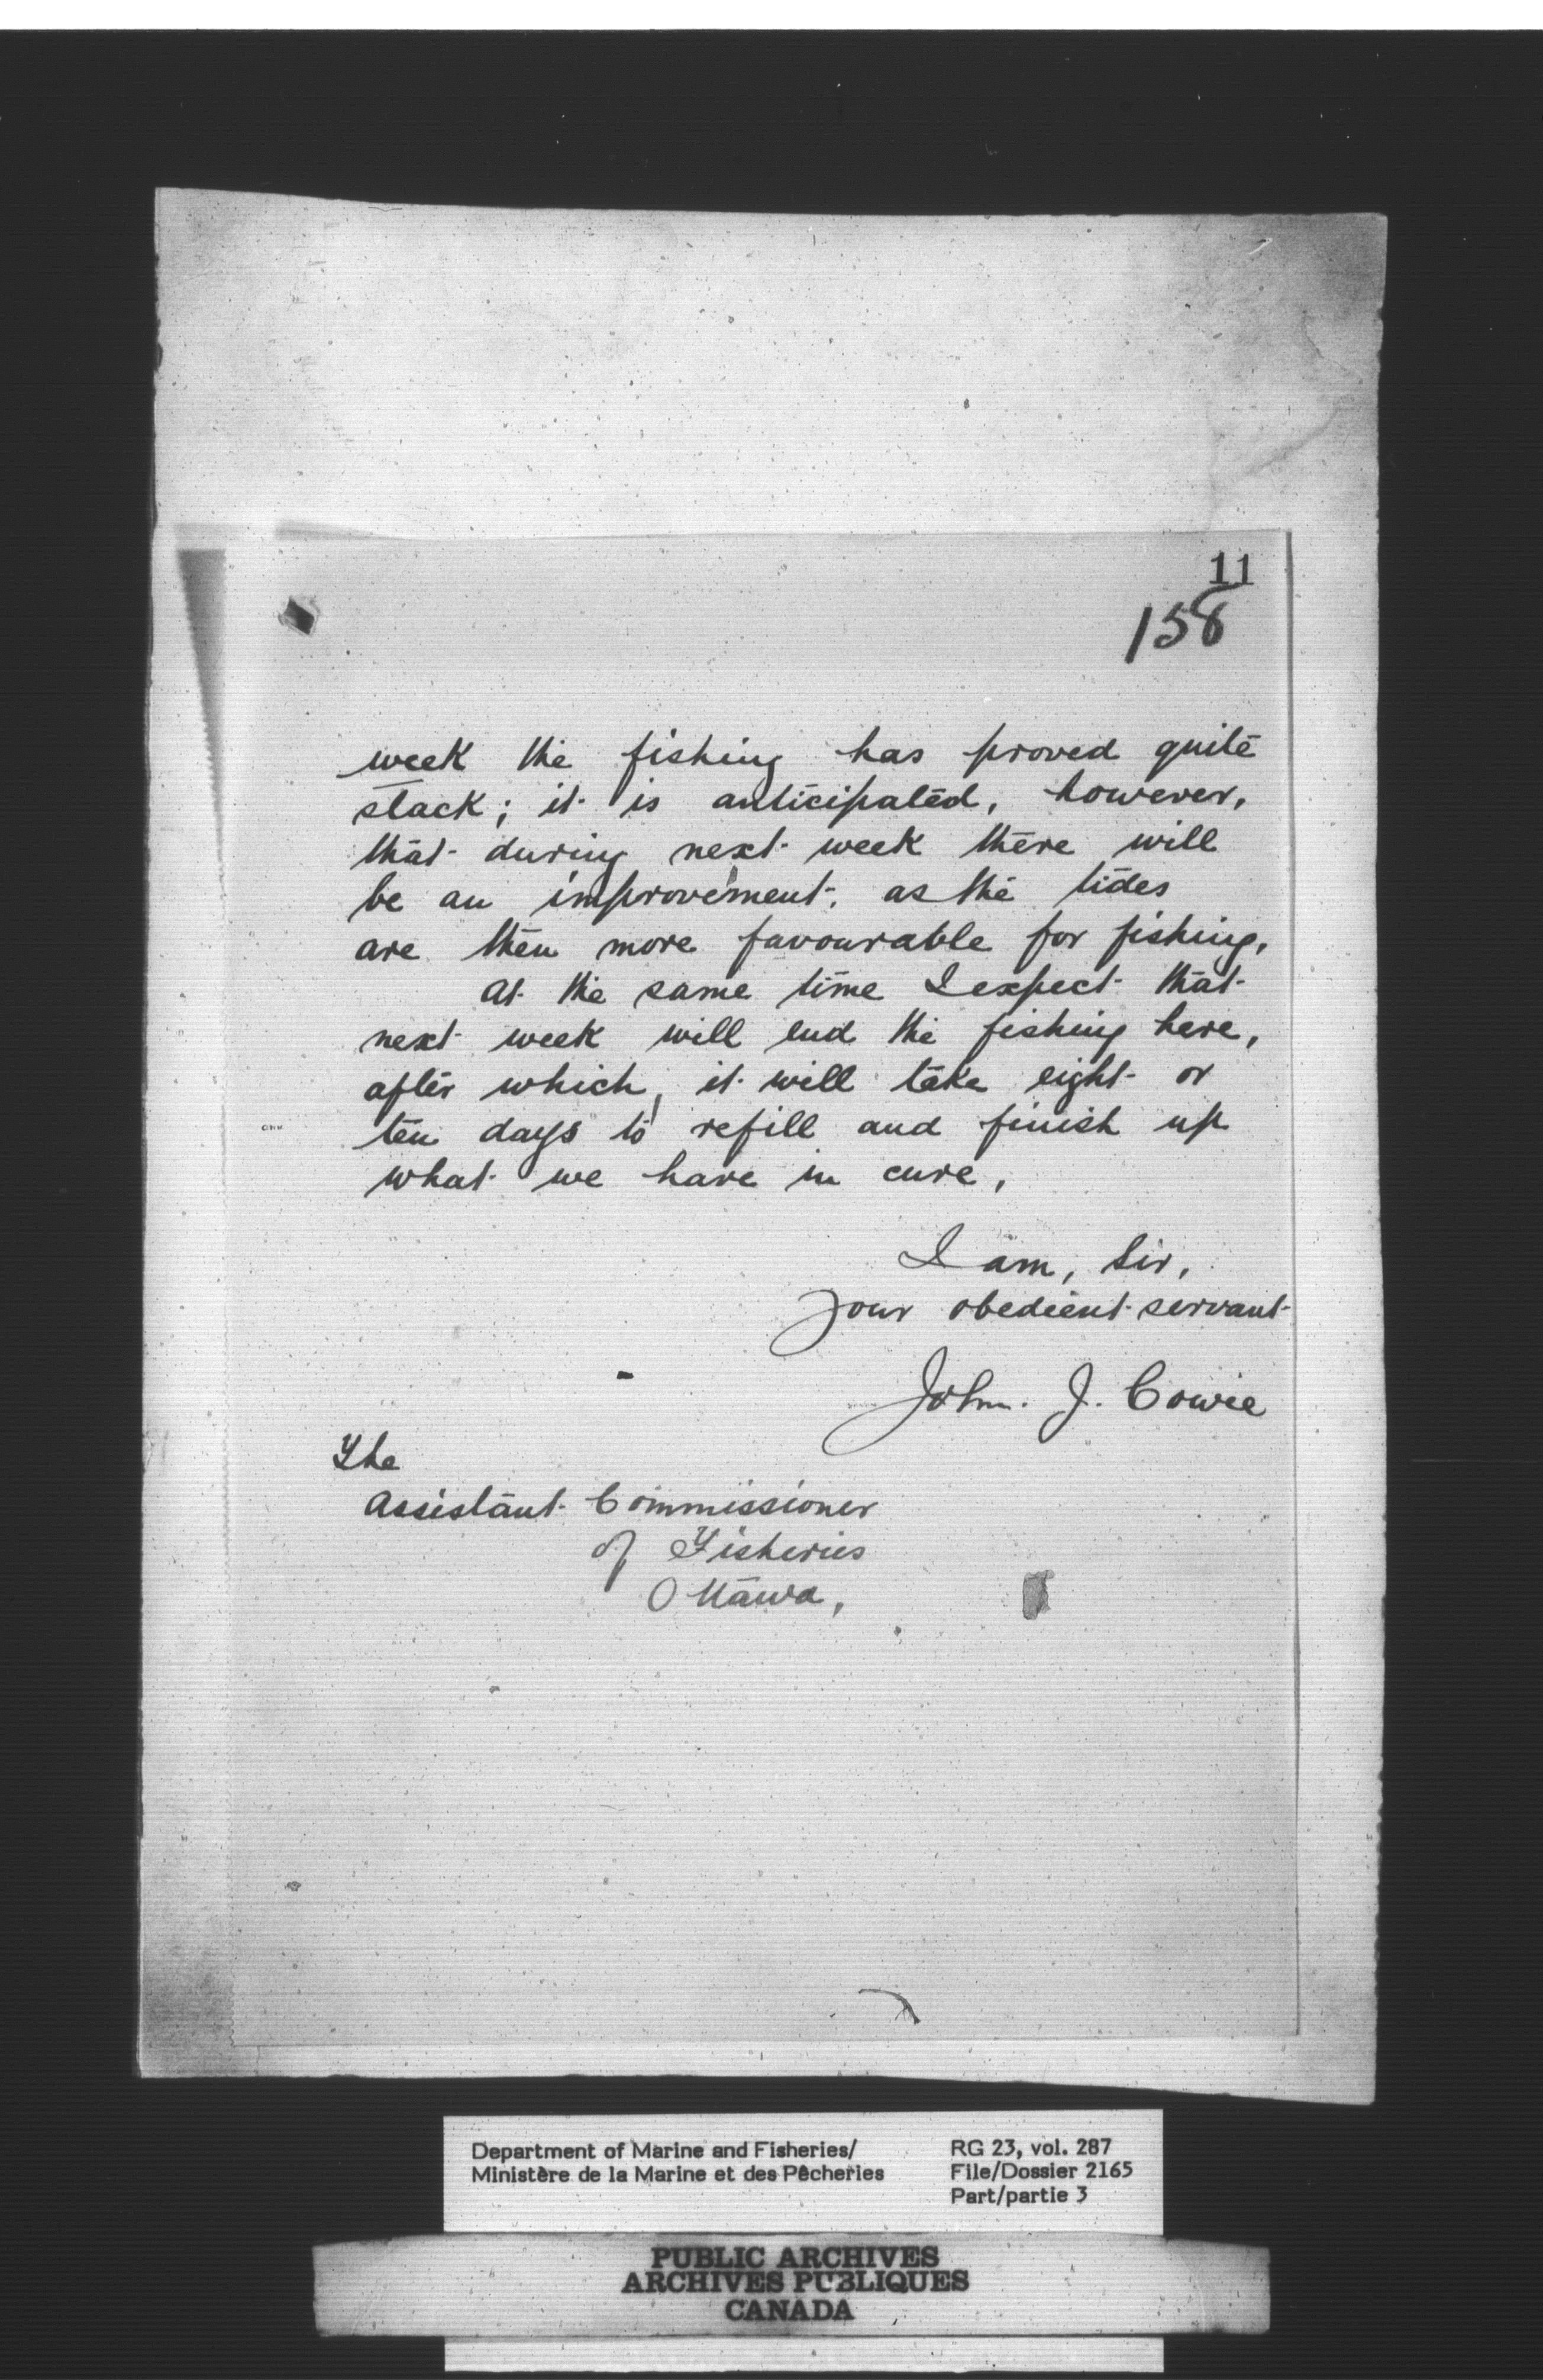 11
158
week the fishing has proved quite
slack; it is anticipated, however,
that during next week there will
be an improvement, as the tides
are then more favourable for fishing.
At the same time I expect that
next week will end the fishing here,
after which, it will take eight or
ten days to refill and finish up
what we have in cure.
I am, Sir,
your obedient servant
John. J. Cowie
The
Assistant Commissioner
of Fisheries
Ottawa,
Department of Marine and Fisheries/
Ministère de la Marine et des Pêcheries
RG 23, vol. 287
File/Dossier 2165
Part/partie 3
PUBLIC ARCHIVES
ARCHIVES PUBLIQUES
CANADA